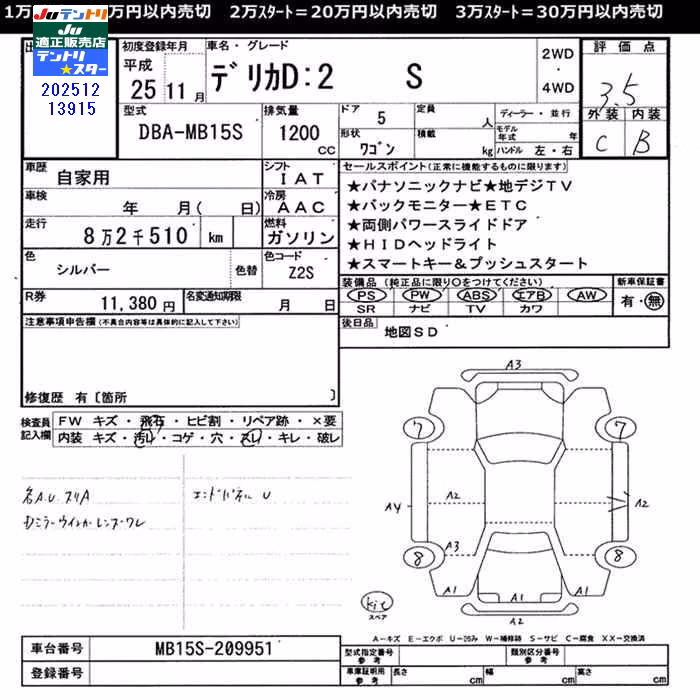 1万 万円以内売切 2万ｽﾀｰﾄ＝20万円以内売切 3万ｽﾀｰﾄ＝30万円以内売切
JUテントリ JUテントリ
JU
適正販売店
テントリ
★スター
202512
13915
初度登録年月
平成
25 11 月
車名・グレード
デリカD:2 S
2WD
・
4WD
評価点
3.5
外装 内装
C B
型式
DBA-MB15S
排気量
1200
cc
ドア
5
定員
人
形状
ワゴン
積載
kg
ディーラー・並行
モデル年式 年
ハンドル 左・右
車歴
自家用
シフト
IAT
車検
年 月( 日)
冷房
AAC
走行
8万2千510 km
燃料
ガソリン
色
シルバー
色替
色コード
Z2S
R券
11,380 円
名変通知期限
月 日
セールスポイント(正常に機能するものに限ります)
★パナソニックナビ★地デジTV
★バックモニター★ETC
★両側パワースライドドア
★HIDヘッドライト
★スマートキー＆プッシュスタート
装備品(純正品に限り○をつけてください)
PS PW ABS エアB AW
SR ナビ TV カワ
新車保証書
有・無
後日品
地図SD
注意事項申告欄(不具合内容等は具体的に記入して下さい)
修復歴 有〔箇所 〕
検査員
記入欄
FW キズ・飛石・ヒビ割・リペア跡・×要
内装 キズ・汚レ・コゲ・穴・スレ・キレ・破レ
各A.U.スリA
ミラーウインカーレンズワレ
エンドパネル U
A3
7 7
A4 A2 A2
A3
8 8
A1 A1 A1
A2
kit
スペア
A−キズ E−エクボ U−凹み W−補修跡 S−サビ C−腐食 XX−交換済
車台番号
MB15S-209951
登録番号
型式指定番号
参考
類別区分番号
参考
車庫証明用
参考
長さ cm
幅 cm
高さ cm